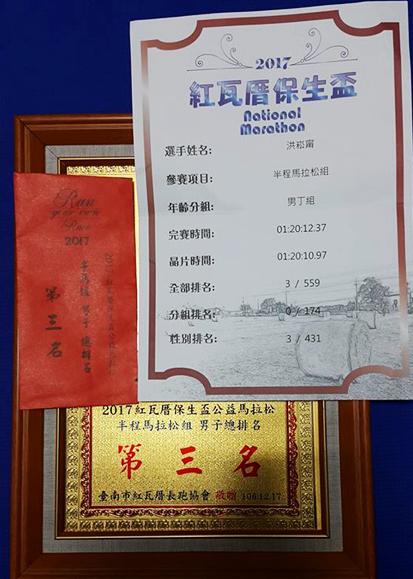 2017
紅瓦厝保生盃
National
Marathon
選手姓名: 洪崧甯
參賽項目: 半程馬拉松組
年齡分組: 男丁組
完賽時間: 01:20:12.37
晶片時間: 01:20:10.97
全部排名: 3 / 559
分組排名: 0 / 174
性別排名: 3 / 431
Run
your own
Race
2017
半馬組 男子 總排名
第三名
2017紅瓦厝保生盃公益馬拉松
半程馬拉松組 男子總排名
第三名
臺南市紅瓦厝長跑協會 敬贈 106.12.17